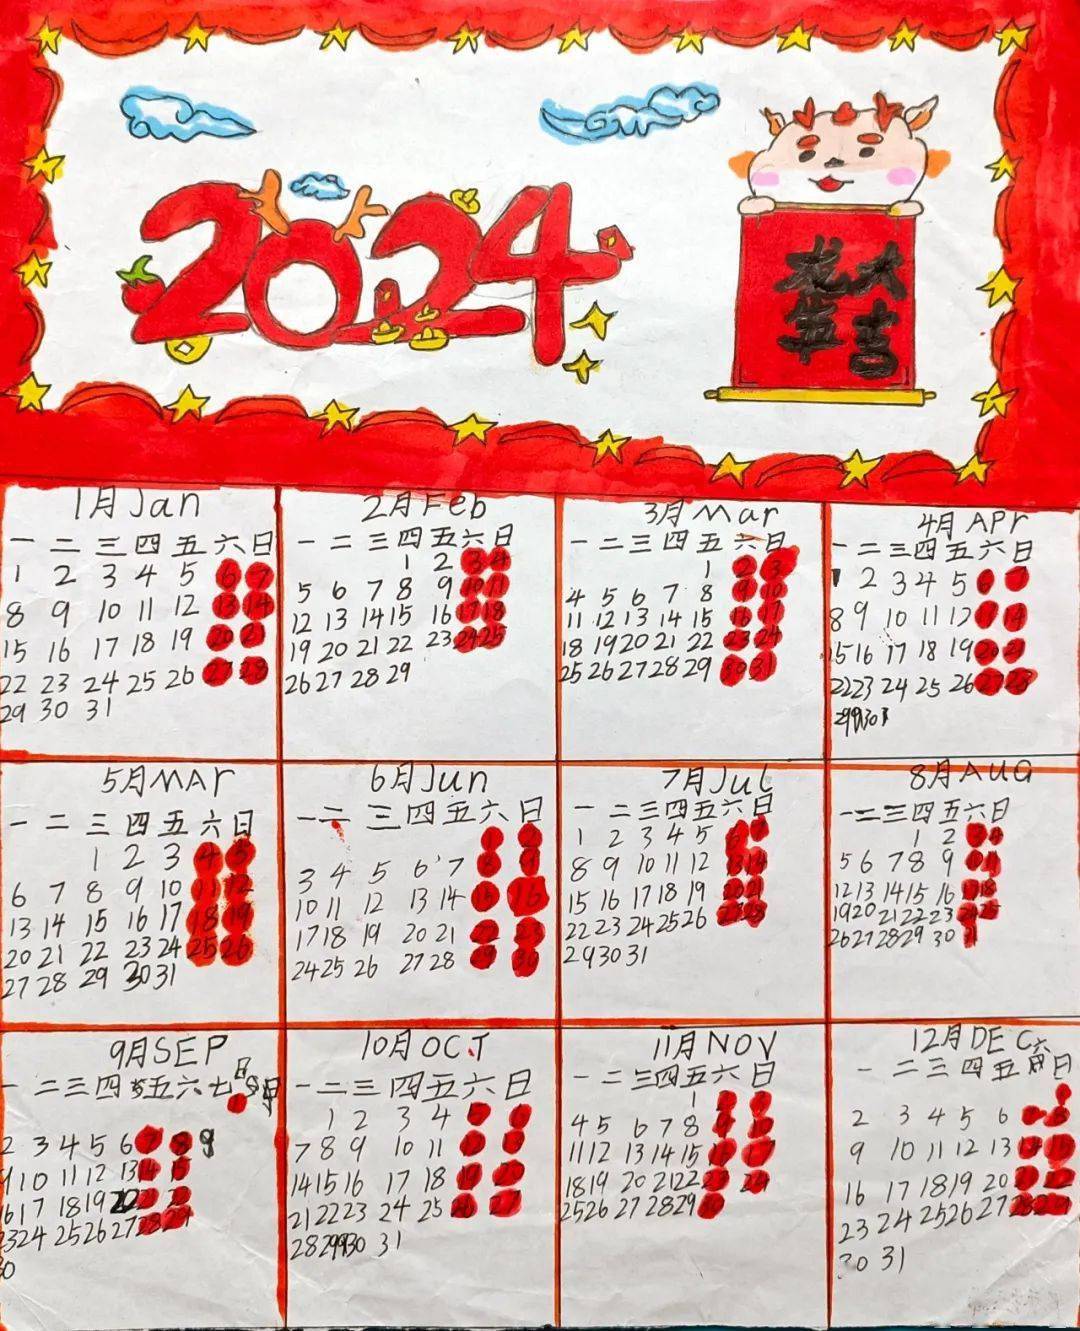 2024
龙大
年吉
1月Jan
一 二 三 四 五 六 日
1 2 3 4 5 6 7
8 9 10 11 12 13 14
15 16 17 18 19 20 21
22 23 24 25 26 27 28
29 30 31
2月Feb
一 二 三 四 五 六 日
1 2 3 4
5 6 7 8 9 10 11
12 13 14 15 16 17 18
19 20 21 22 23 24 25
26 27 28 29
3月Mar
一 二 三 四 五 六 日
1 2 3
4 5 6 7 8 9 10
11 12 13 14 15 16 17
18 19 20 21 22 23 24
25 26 27 28 29 30 31
4月APr
一 二 三 四 五 六 日
1 2 3 4 5 6 7
8 9 10 11 12 14
15 16 17 18 19 20 21
22 23 24 25 26 27 28
29 30
5月MAr
一 二 三 四 五 六 日
1 2 3 4 5
6 7 8 9 10 11 12
13 14 15 16 17 18 19
20 21 22 23 24 25 26
27 28 29 30 31
6月Jun
一 二 三 四 五 六 日
3 4 5 6 7 8 9
10 11 12 13 14 15 16
17 18 19 20 21 22 23
24 25 26 27 28 29 30
7月Jul
一 二 三 四 五 六 日
1 2 3 4 5 6 7
8 9 10 11 12 13 14
15 16 17 18 19 20 21
22 23 24 25 26 27 28
29 30 31
8月AUG
一 二 三 四 五 六 日
1 2 3 4
5 6 7 8 9 10 11
12 13 14 15 16 17 18
19 20 21 22 23 24 25
26 27 28 29 30 31
9月SEP
一 二 三 四 五 六 七 日
2 3 4 5 6 7 8 9
9 10 11 12 13 14 15
16 17 18 19 20
23 24 25 26 27 28 29
30
10月OCT
一 二 三 四 五 六 日
1 2 3 4 5
7 8 9 10 11
14 15 16 17 18 19 20
21 22 23 24 25 26 27
28 29 30 31
11月NOV
一 二 三 四 五 六 日
1
4 5 6 7 8 10
11 12 13 14 15 16 17
18 19 20 21 22 23 24
25 26 27 28 29 30
12月DEC
一 二 三 四 五 六 日
2 3 4 5 6
9 10 11 12 13
16 17 18 19 20
23 24 25 26 27 28 29
30 31